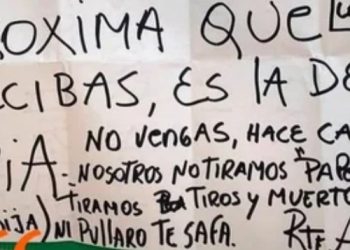 OXIMA QUE
CIBAS, ES LA DE
iA - NO VENGAS, HACE CA
- NOSOTROS NO TIRAMOS "PAPE
- TIRAMOS TIROS Y MUERTO
ija) NI PULLARO TE SAFA.
RTE A